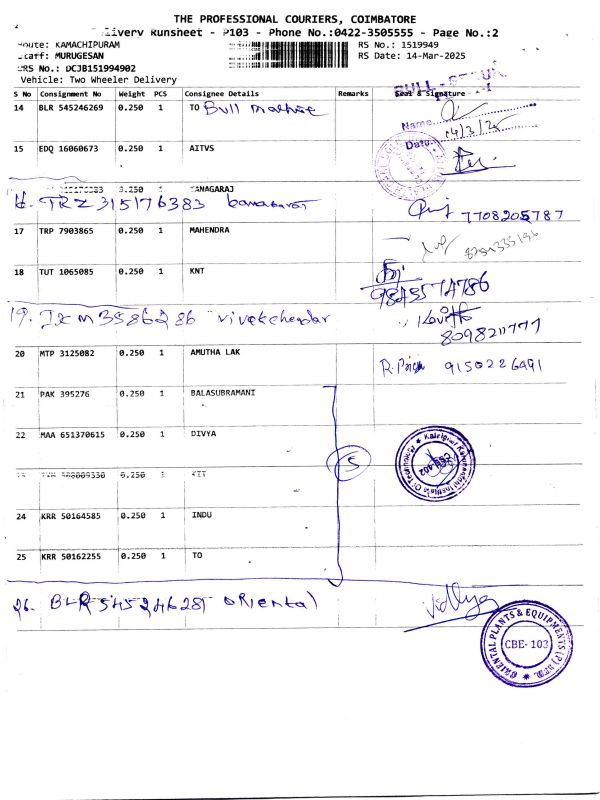 THE PROFESSIONAL COURIERS, COIMBATORE
livery Runsheet - P103 - Phone No.:0422-3505555 - Page No.:2
oute: KAMACHIPURAM
RS No.: 1519949
taff: MURUGESAN
RS Date: 14-Mar-2025
RS No.: DCJB151994902
Vehicle: Two Wheeler Delivery
S No Consignment No Weight PCS Consignee Details Remarks Seal & Signature
14 BLR 545246269 0.250 1 TO Bull machine
Name
Date: 14/3/25
15 EDQ 16060673 0.250 1 AITVS
0.250 1 KANAGARAJ
TRZ 315176383 kanagaraj
7708205787
17 TRP 7903865 0.250 1 MAHENDRA
18 TUT 1065085 0.250 1 KNT
9845574786
19. IXM 3586286 vivekchendar
8098211777
20 MTP 3125082 0.250 1 AMUTHA LAK
R. Priya 9150226491
21 PAK 395276 0.250 1 BALASUBRAMANI
22 MAA 651370615 0.250 1 DIVYA
5
0.250 KIT
24 KRR 50164585 0.250 1 INDU
25 KRR 50162255 0.250 1 TO
26. BLR 545246287 oriental
Vidhya
ORIENTAL PLANTS & EQUIPMENTS (P) LTD.
CBE-103